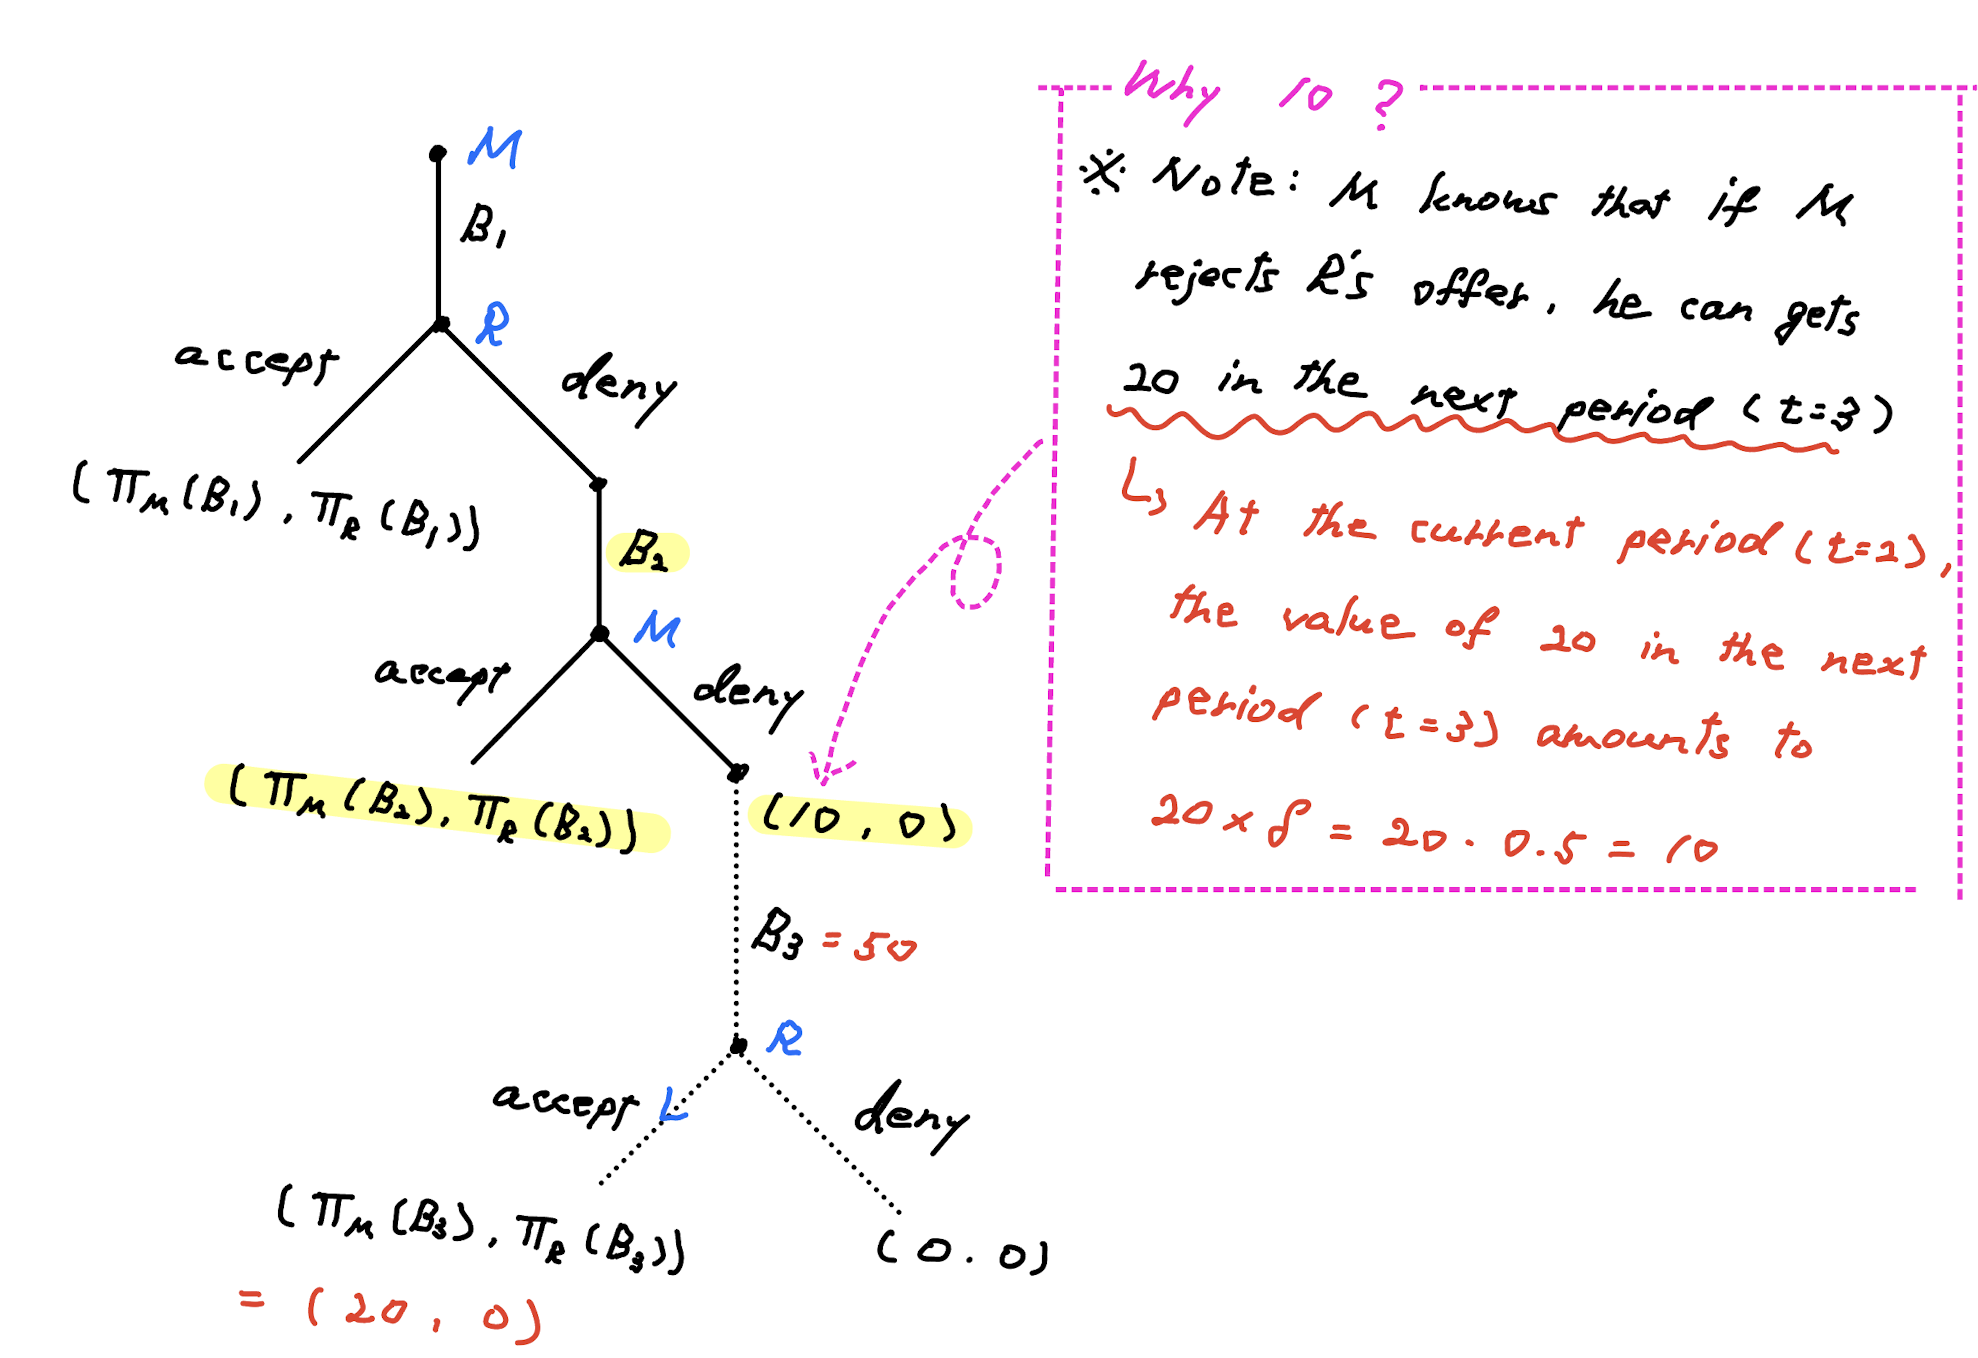 M
B₁
R
accept
deny
(π_M(B₁), π_R(B₁))
B₂
M
accept
deny
(π_M(B₂), π_R(B₂))
(10, 0)
B₃ = 50
R
accept
deny
(π_M(B₃), π_R(B₃))
(0. 0)
= (20, 0)
Why 10 ?
※ Note: M knows that if M
rejects R's offer, he can gets
20 in the next period (t=3)
↳ At the current period (t=2),
the value of 20 in the next
period (t=3) amounts to
20 × δ = 20 · 0.5 = 10